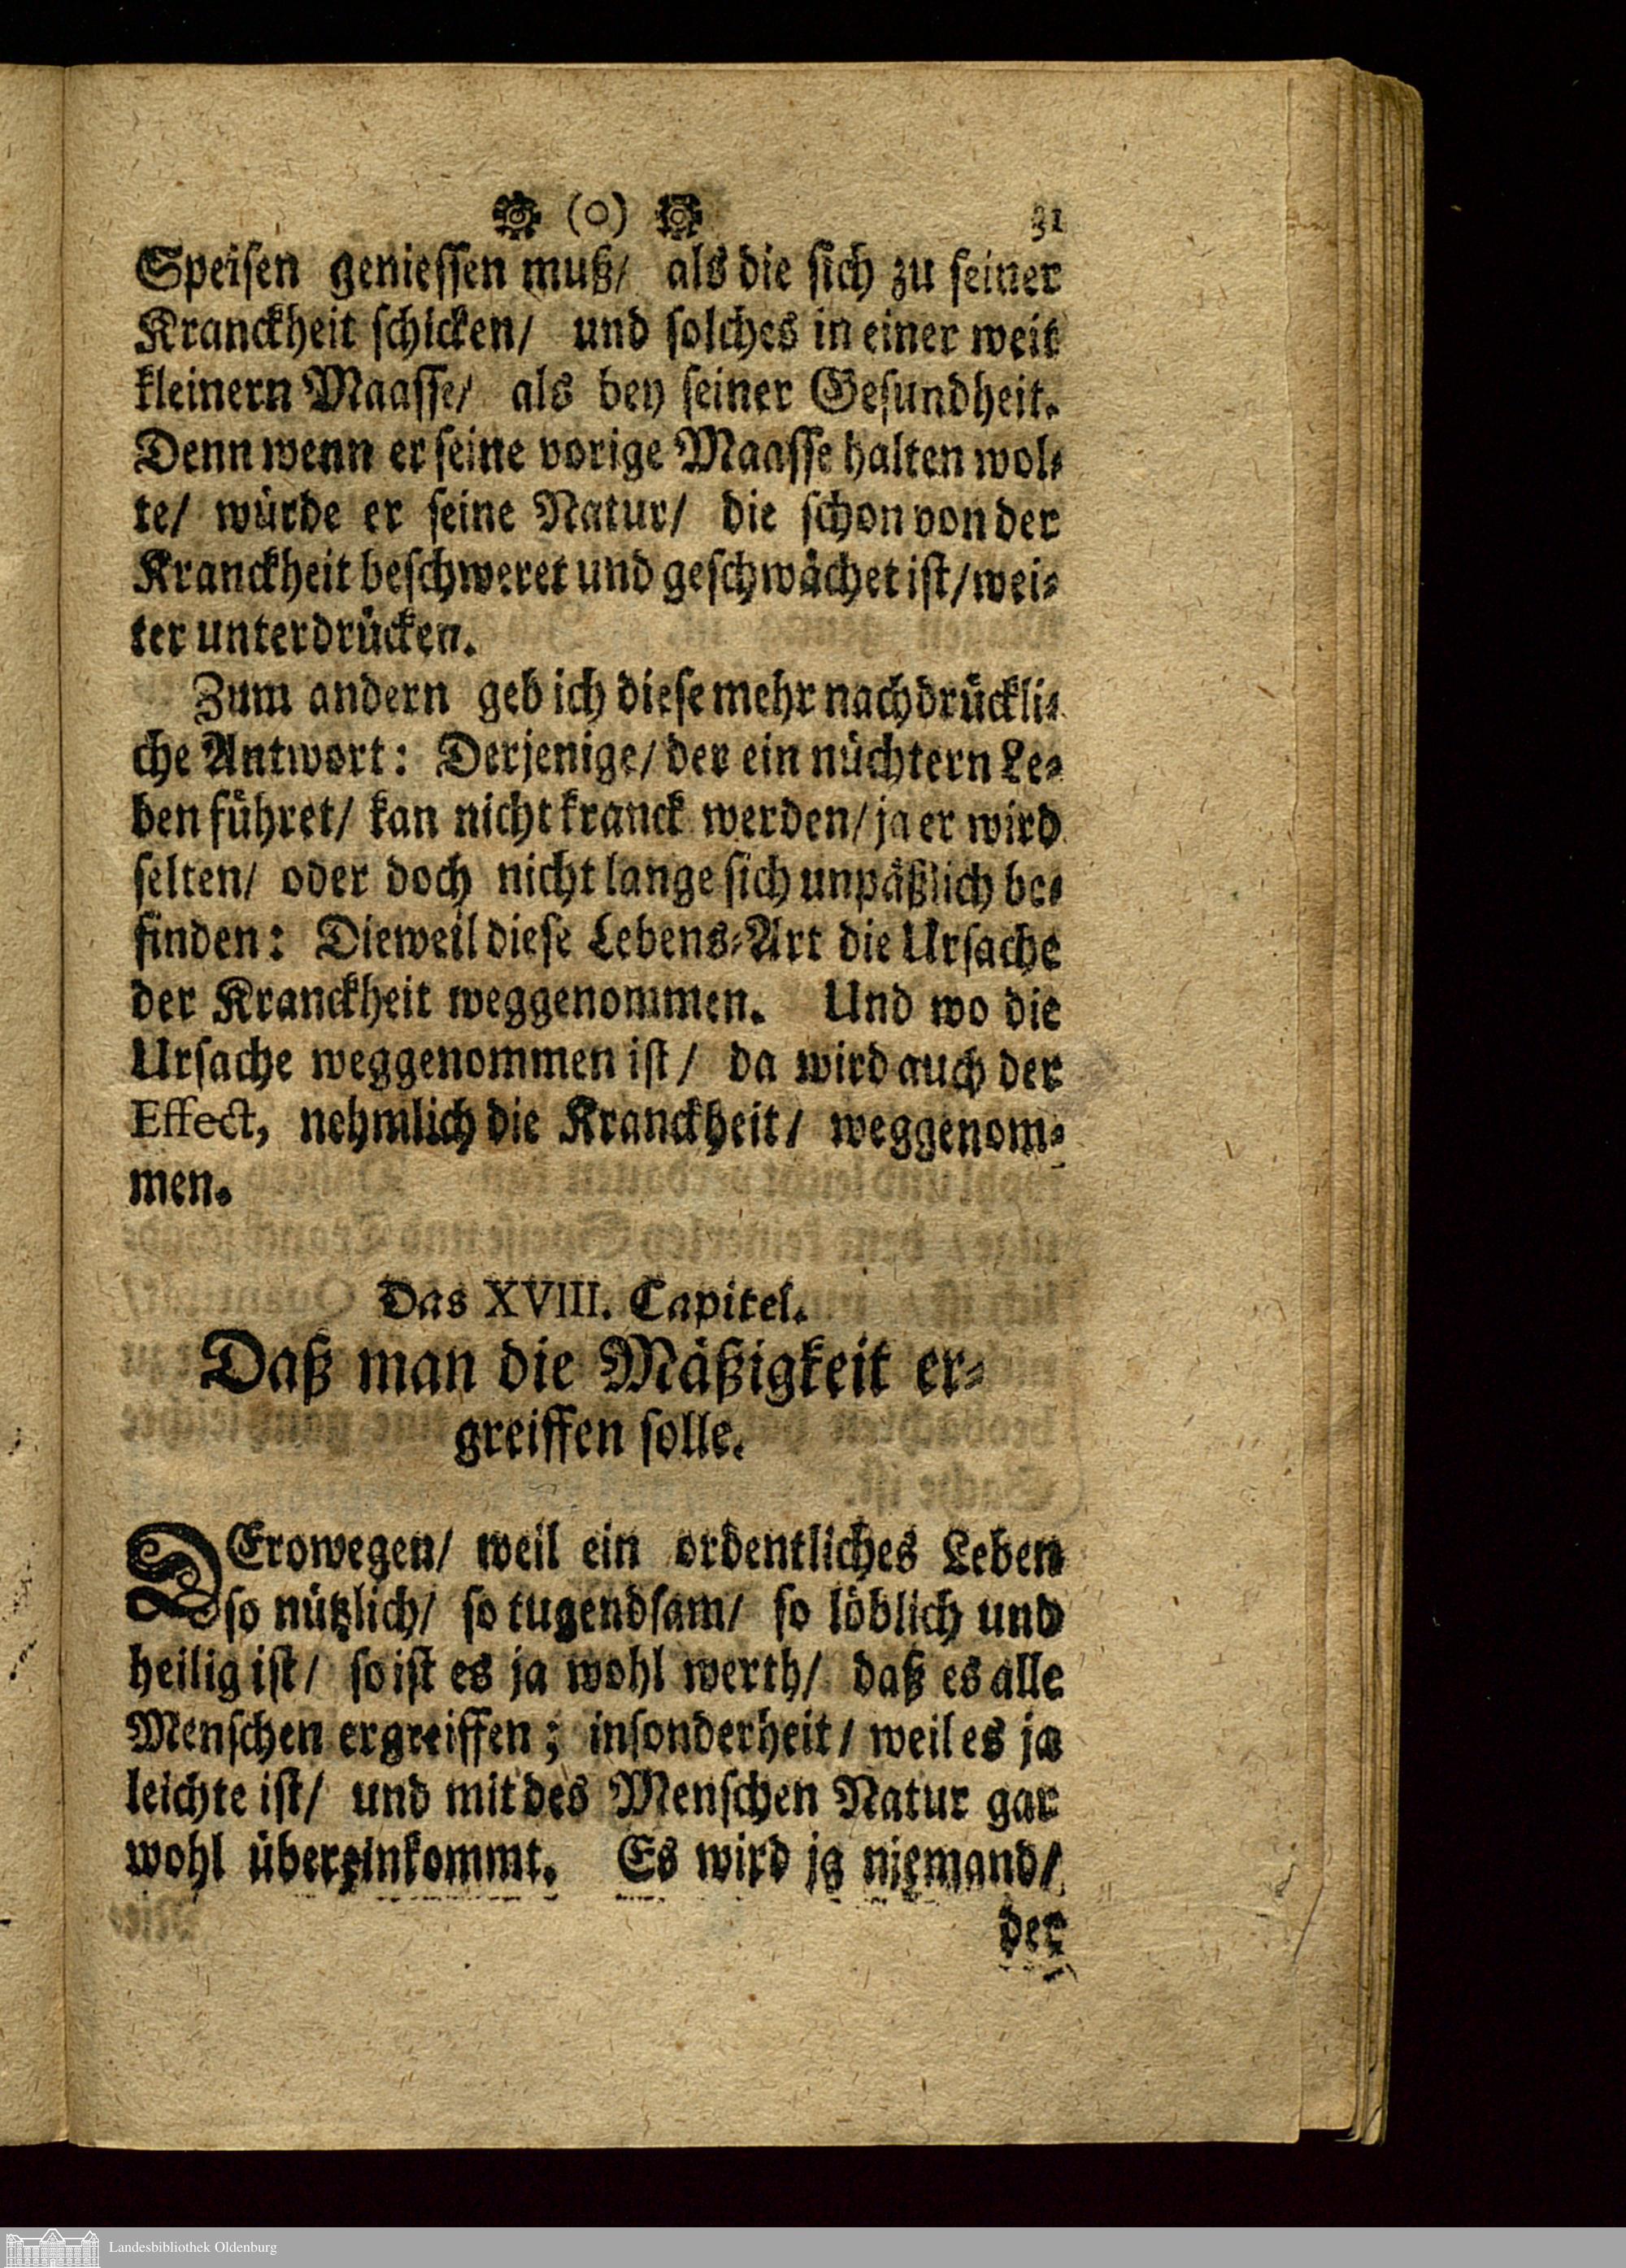 (O) 31
Speisen geniessen muß/ als die sich zu seiner
Kranckheit schicken/ und solches in einer weit
kleinern Maasse/ als bey seiner Gesundheit.
Denn wenn er seine vorige Maasse halten wol-
te/ würde er seine Natur/ die schon von der
Kranckheit beschweret und geschwächet ist/ wei-
ter unterdrücken.
Zum andern geb ich diese mehr nachdrückli-
che Antwort: Derjenige/ der ein nüchtern Le-
ben führet/ kan nicht kranck werden/ ja er wird
selten/ oder doch nicht lange sich unpäßlich be-
finden: Dieweil diese Lebens-Art die Ursache
der Kranckheit weggenommen. Und wo die
Ursache weggenommen ist/ da wird auch der
Effect, nehmlich die Kranckheit/ weggenom-
men.
Das XVIII. Capitel.
Daß man die Mäßigkeit er-
greiffen solle.
DErowegen/ weil ein ordentliches Leben
so nützlich/ so tugendsam/ so löblich und
heilig ist/ so ist es ja wohl werth/ daß es alle
Menschen ergreiffen; insonderheit/ weil es ja
leichte ist/ und mit des Menschen Natur gar
wohl übereinkommt. Es wird ja niemand/
der
Landesbibliothek Oldenburg